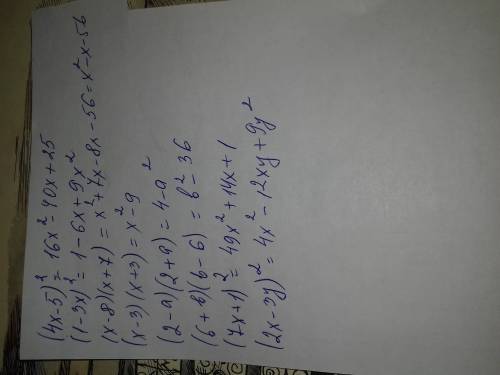 (4x-5)² = 16x² - 40x + 25
(1-3x)² = 1 - 6x + 9x²
(x-8)(x+7) = x² + 7x - 8x - 56 = x² - x - 56
(x-3)(x+3) = x² - 9
(2-a)(2+a) = 4 - a²
(6+b)(b-6) = b² - 36
(7x+1)² = 49x² + 14x + 1
(2x-3y)² = 4x² - 12xy + 9y²